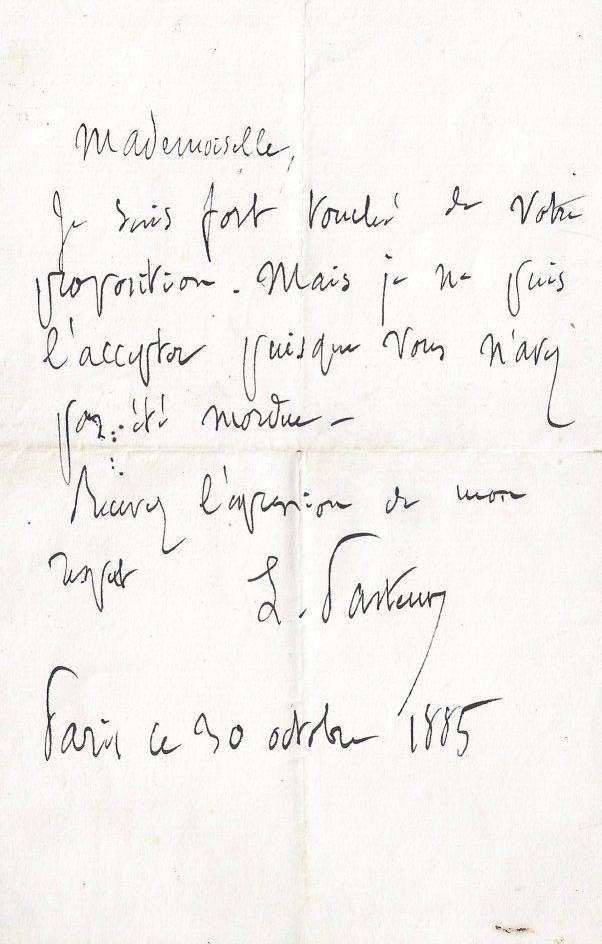 Mademoiselle,
Je suis fort touché de votre
proposition. Mais je ne puis
l'accepter puisque vous n'avez
pas été mordue –
Recevez l'expression de mon
respect
L. Pasteur
Paris ce 30 octobre 1885